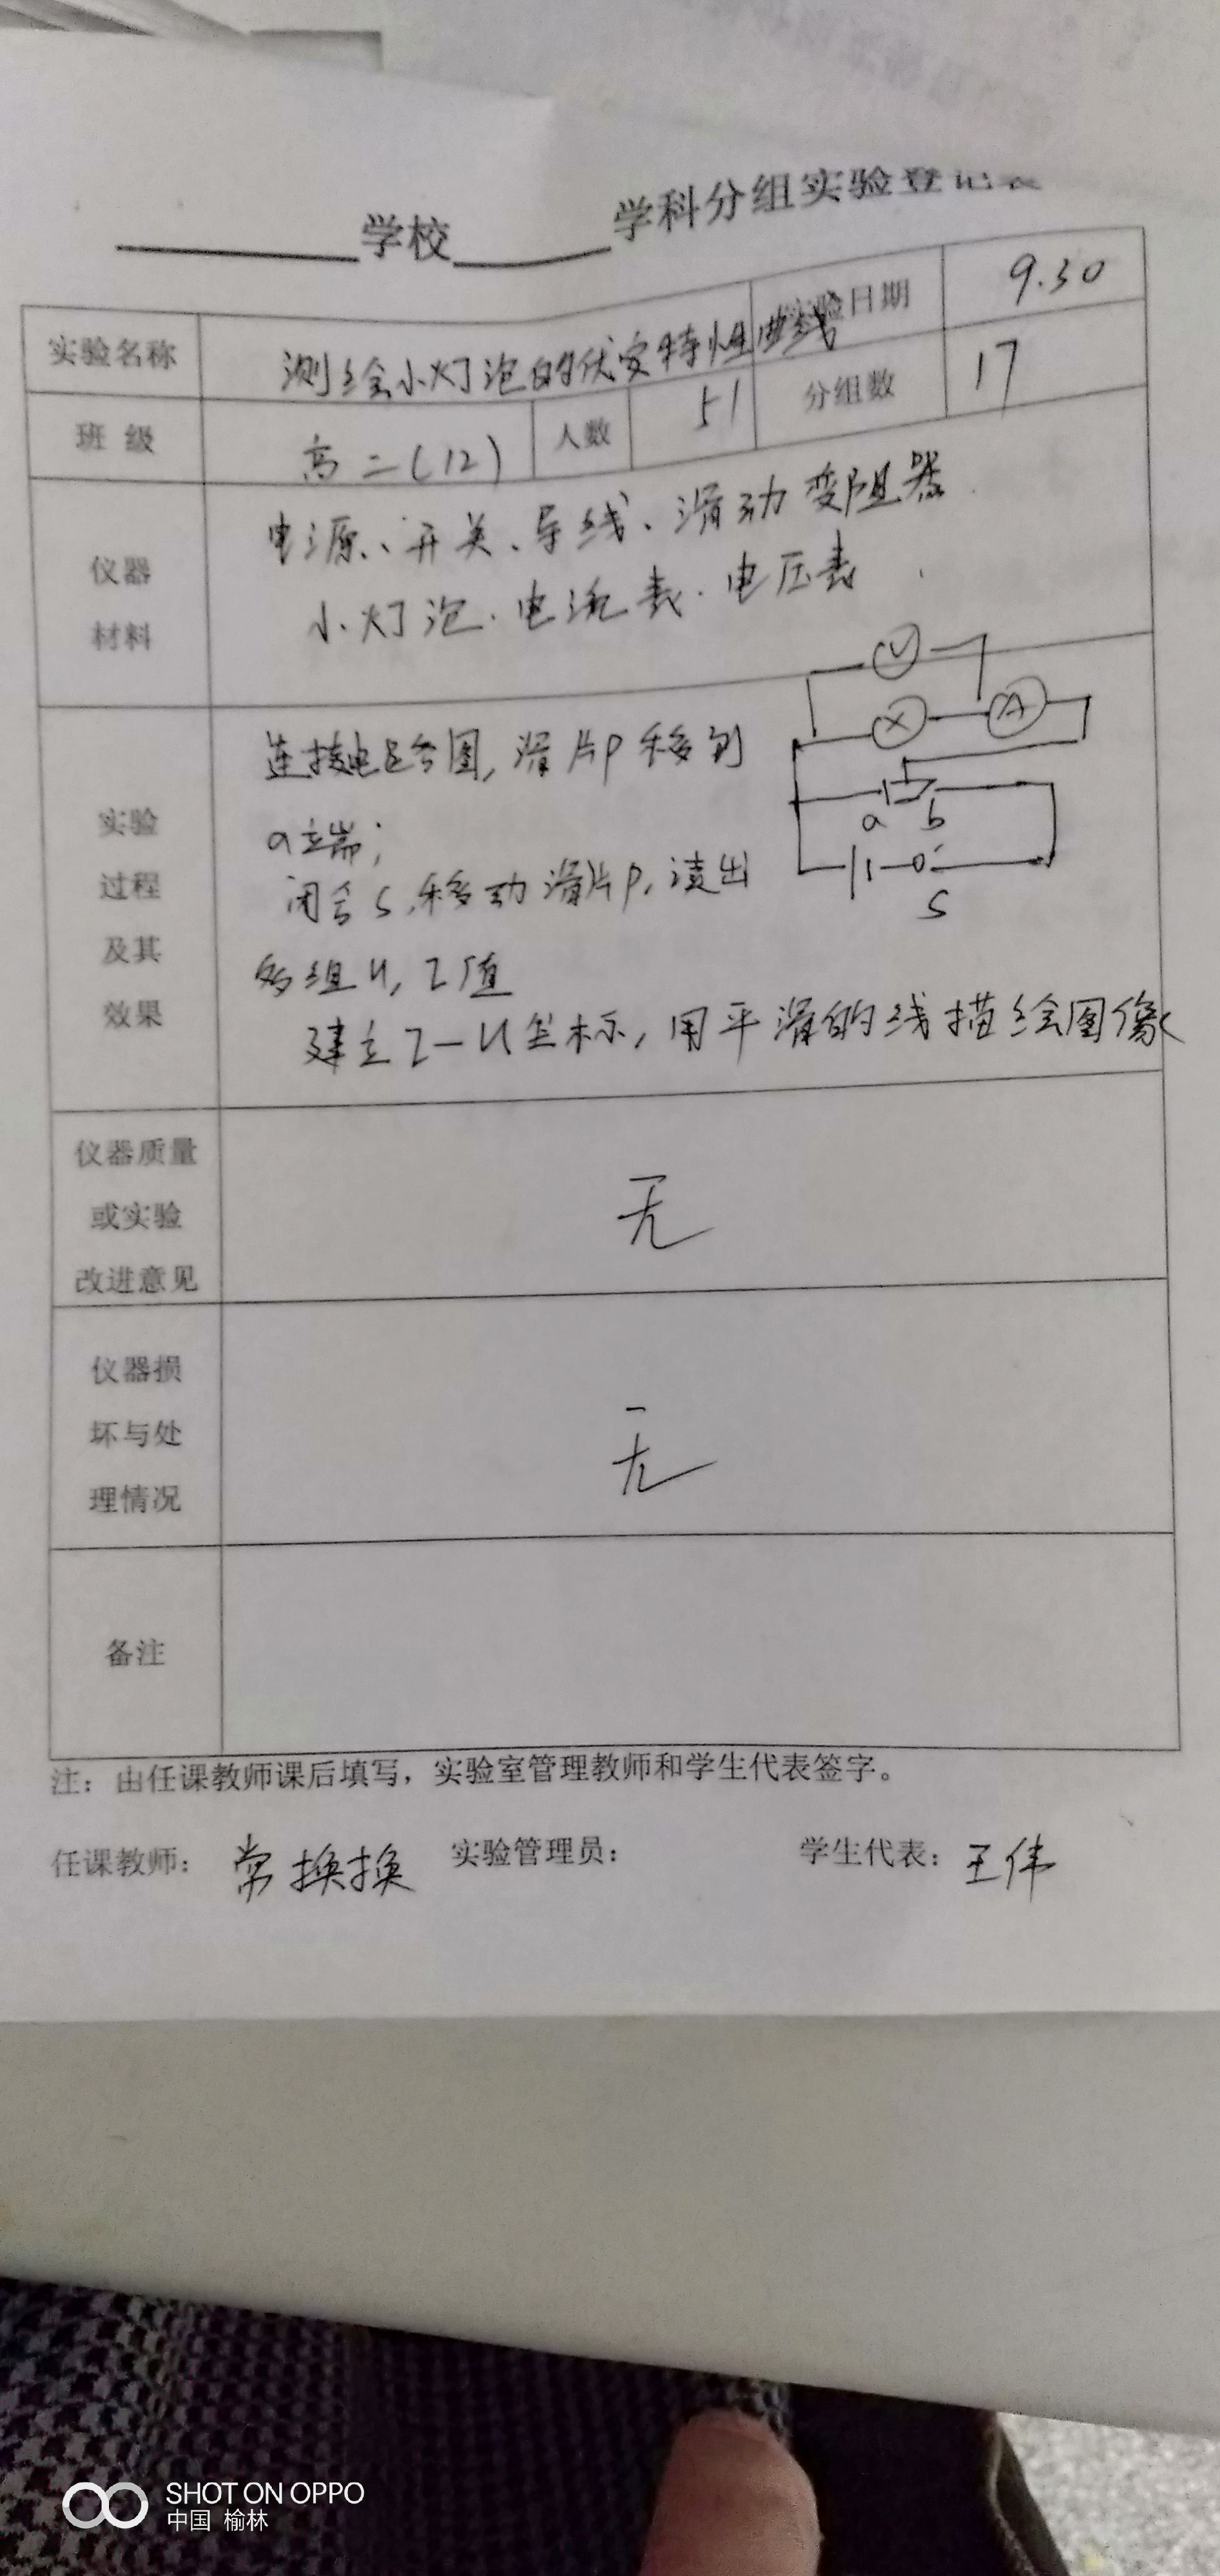 学校 学科分组实验登记表
实验名称 测绘小灯泡的伏安特性曲线 实验日期 9.30
班 级 高二(12) 人数 51 分组数 17
仪器 材料
电源、开关、导线、滑动变阻器
小灯泡.电流表.电压表
实验 过程 及其 效果
连接电路如图,滑片P移到
a端;
闭合S,移动滑片P,读出
多组U,I值
建立I-U坐标,用平滑的线描绘图像
V
X A
a b
S
仪器质量 或实验 改进意见
无
仪器损 坏与处 理情况
无
备注
注:由任课教师课后填写,实验室管理教师和学生代表签字。
任课教师: 常换换 实验管理员: 学生代表: 王伟
SHOT ON OPPO
中国 榆林